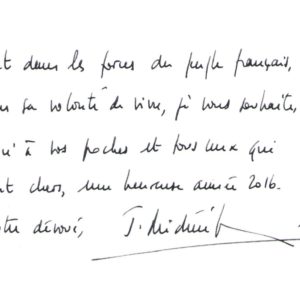 t dans les forces du peuple français,
sa volonté de vivre, je vous souhaite,
u'à vos proches et tous ceux qui
nt chers, une heureuse année 2016.
otre dévoué,